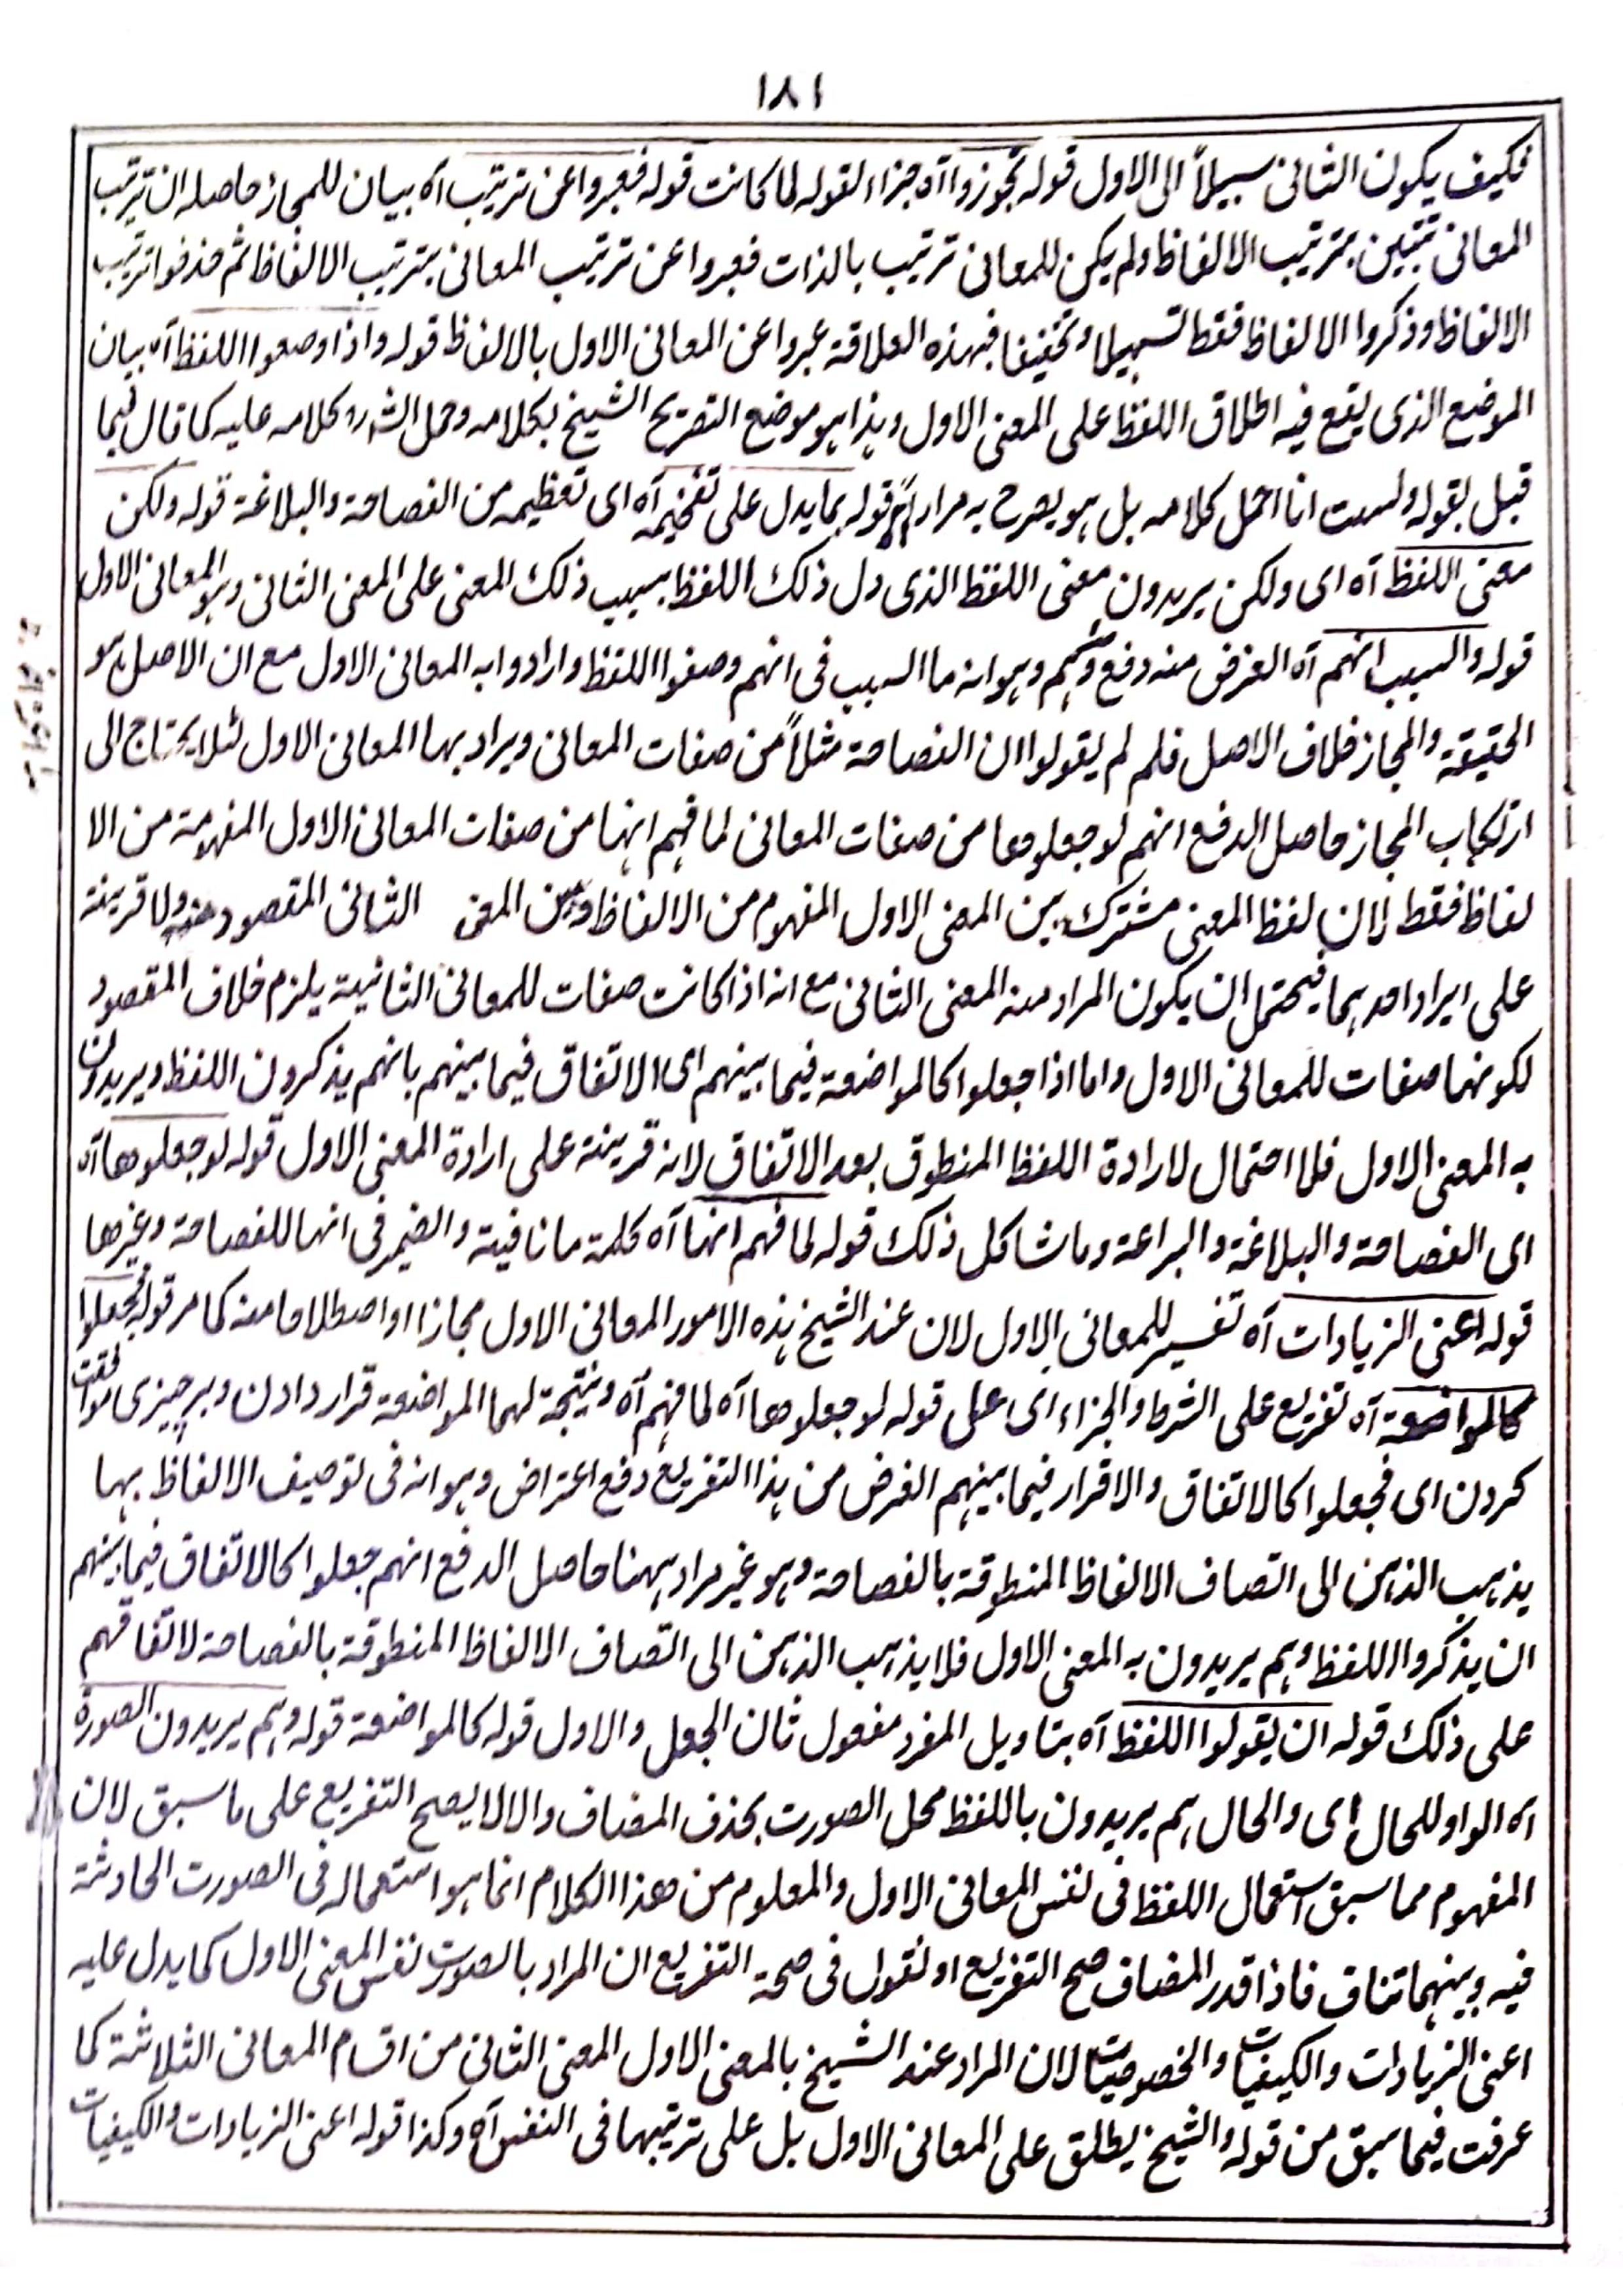 ۱۸۱
فکیف یکون الثانی سبیلاً الی الاول قوله تجوزوا آه جزاء لقوله لما کانت قوله فعبروا عن ترتیب آه بیان للمجاز حاصله ان ترتیب
المعانی تتبین بترتیب الالفاظ ولم یکن للمعانی ترتیب بالذات فعبروا عن ترتیب المعانی بترتیب الالفاظ ثم حذفوا ترتیب
الالفاظ وذکروا الالفاظ فقط تسهیلا وتخفیفا فبهذه العلاقة عبروا عن المعانی الاول بالالفاظ قوله واذا وصفوا اللفظ آه بیان
الموضع الذی یقع فیه اطلاق اللفظ علی المعنی الاول وهذا هو موضع التصریح الشیخ بکلامه وحمل الش رہ کلامه علیه کما قال فیما
قبل بقوله ولست انا احمل کلامه بل هو یصرح به مراراً قوله بما یدل علی تفخیمه آه ای تعظیمه من الفصاحة والبلاغة قوله ولکن
معنی اللفظ آه ای ولکن یریدون معنی اللفظ الذی دل ذلک اللفظ بسبب ذلک المعنی علی المعنی الثانی وهو المعانی الاول
قوله والسبب انهم آه الغرض منه دفع وهم وهو انه ما السبب فی انهم وصفوا اللفظ وارادوا به المعانی الاول مع ان الاصل هو
الحقیقة والمجاز خلاف الاصل فلم لم یقولوا ان الفصاحة مثلاً من صفات المعانی ویراد بها المعانی الاول لئلا یحتاج الی
ارتکاب المجاز حاصل الدفع انهم لو جعلوها من صفات المعانی لما فهم انها من صفات المعانی الاول المفهومة من الا
لفاظ فقط لان لفظ المعنی مشترک بین المعنی الاول المفهوم من الالفاظ وبین المعنی الثانی المقصود منه ولا قرینة
علی ایراد احدهما فیحتمل ان یکون المراد منه المعنی الثانی مع انه اذا کانت صفات للمعانی الثانیة یلزم خلاف المقصود
لکونها صفات للمعانی الاول واما اذا جعلوا کالمواضعة فیما بینهم ای الاتفاق فیما بینهم بانهم یذکرون اللفظ ویریدون
به المعنی الاول فلا احتمال لارادة اللفظ المنطوق بعد الاتفاق لانه قرینة علی ارادة المعنی الاول قوله لو جعلوها آه
ای الفصاحة والبلاغة والبراعة وما شاکل ذلک قوله لما فهم انها آه کلمة ما نافیة والضمیر فی انها للفصاحة وغیرها
قوله اعنی الزیادات آه تفسیر للمعانی الاول لان عند الشیخ هذه الامور المعانی الاول مجازا او اصطلاحا منه کما مر قوله فجعلوا
کالمواضعة آه تفریع علی الشرط والجزاء ای علی قوله لو جعلوها آه لما فهم آه ونتیجة لهما المواضعة قرار دادن وبر چیزی موافقت
کردن ای فجعلوا کالاتفاق والاقرار فیما بینهم الغرض من هذا التفریع دفع اعتراض وهو انه فی توصیف الالفاظ بها
یذهب الذهن الی اتصاف الالفاظ المنطوقة بالفصاحة وهو غیر مراد ههنا حاصل الدفع انهم جعلوا کالاتفاق فیما بینهم
ان یذکروا اللفظ وهم یریدون به المعنی الاول فلا یذهب الذهن الی اتصاف الالفاظ المنطوقة بالفصاحة لاتفاقهم
علی ذلک قوله ان یقولوا اللفظ آه بتاویل المفرد مفعول ثان الجعل والاول قوله کالمواضعة قوله وهم یریدون الصورة
آه الواو للحال ای والحال هم یریدون باللفظ محل الصورت بحذف المضاف والا لا یصح التفریع علی ما سبق لان
المفهوم مما سبق استعمال اللفظ فی نفس المعانی الاول والمعلوم من هذا الکلام انما هو استعماله فی الصورت الحادثة
فیه وبینهما تناف فاذا قدر المضاف صح التفریع او نقول فی صحة التفریع ان المراد بالصورت نفس المعنی الاول کما یدل علیه
اعنی الزیادات والکیفیات والخصوصیات لان المراد عند الشیخ بالمعنی الاول المعنی الثانی من اقسام المعانی الثلاثة کما
عرفت فیما سبق من قوله والشیخ یطلق علی المعانی الاول بل علی ترتیبها فی النفس آه وکذا قوله اعنی الزیادات والکیفیات